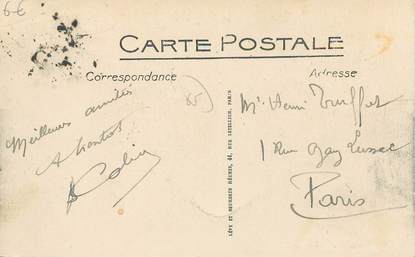 6€
CARTE POSTALE
Correspondance
Adresse
Meilleures amitiés
A bientôt
LÉVY ET NEURDEIN RÉUNIS, 44, RUE LETELLIER, PARIS
Mr Henri Truffot
1 Rue Gay Lussac
Paris